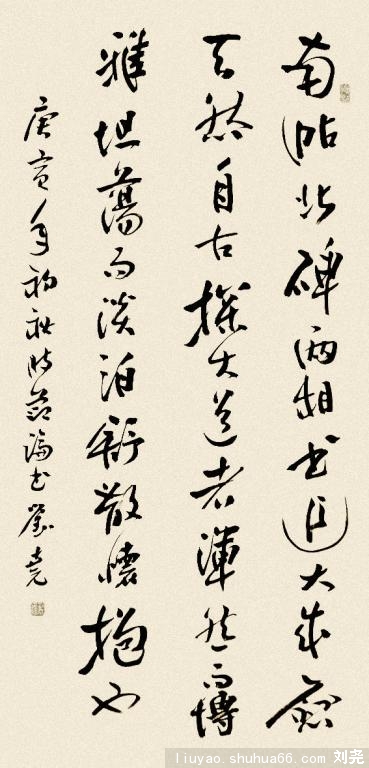 南帖北碑兩相書大成
天然自古探大道者渾然而博
雅坦蕩而淡泊舒散懷抱也
庚寅年初秋時節論書劉堯
liuyao.shuhua66.com 刘尧